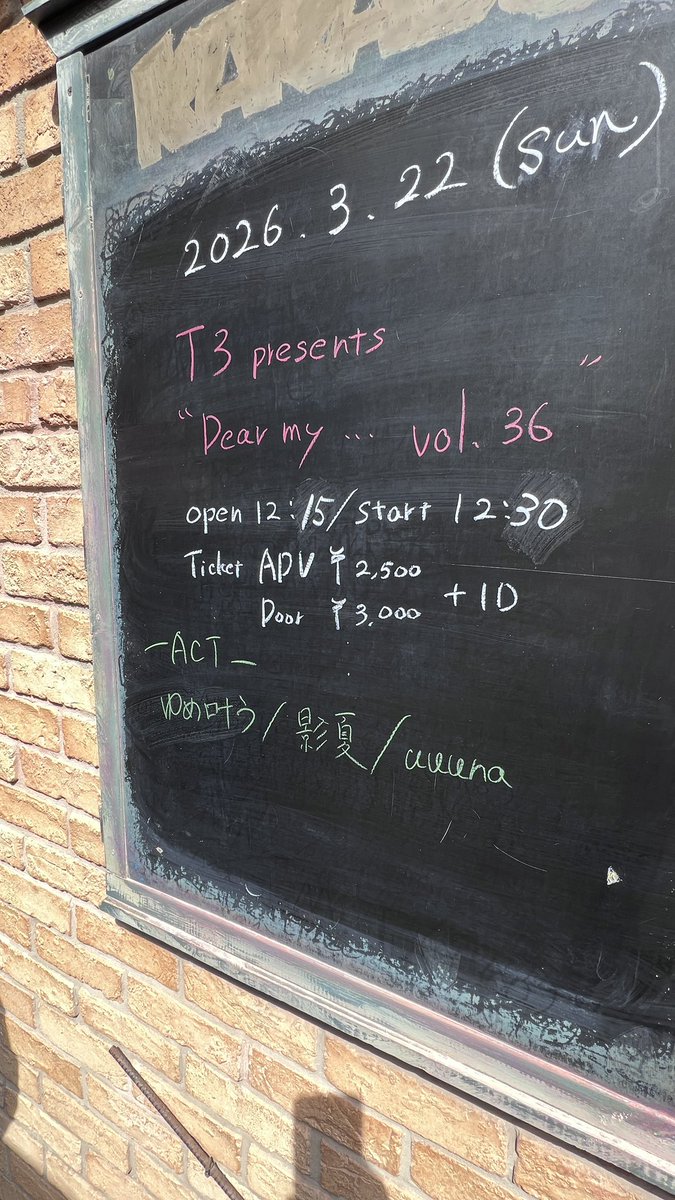 2026. 3. 22 (sun)
T3 presents
"Dear my … vol. 36"
open 12:15/start 12:30
Ticket ADV ¥2,500
Door ¥3,000 +1D
-ACT-
ゆめ叶う/影夏/uuuna